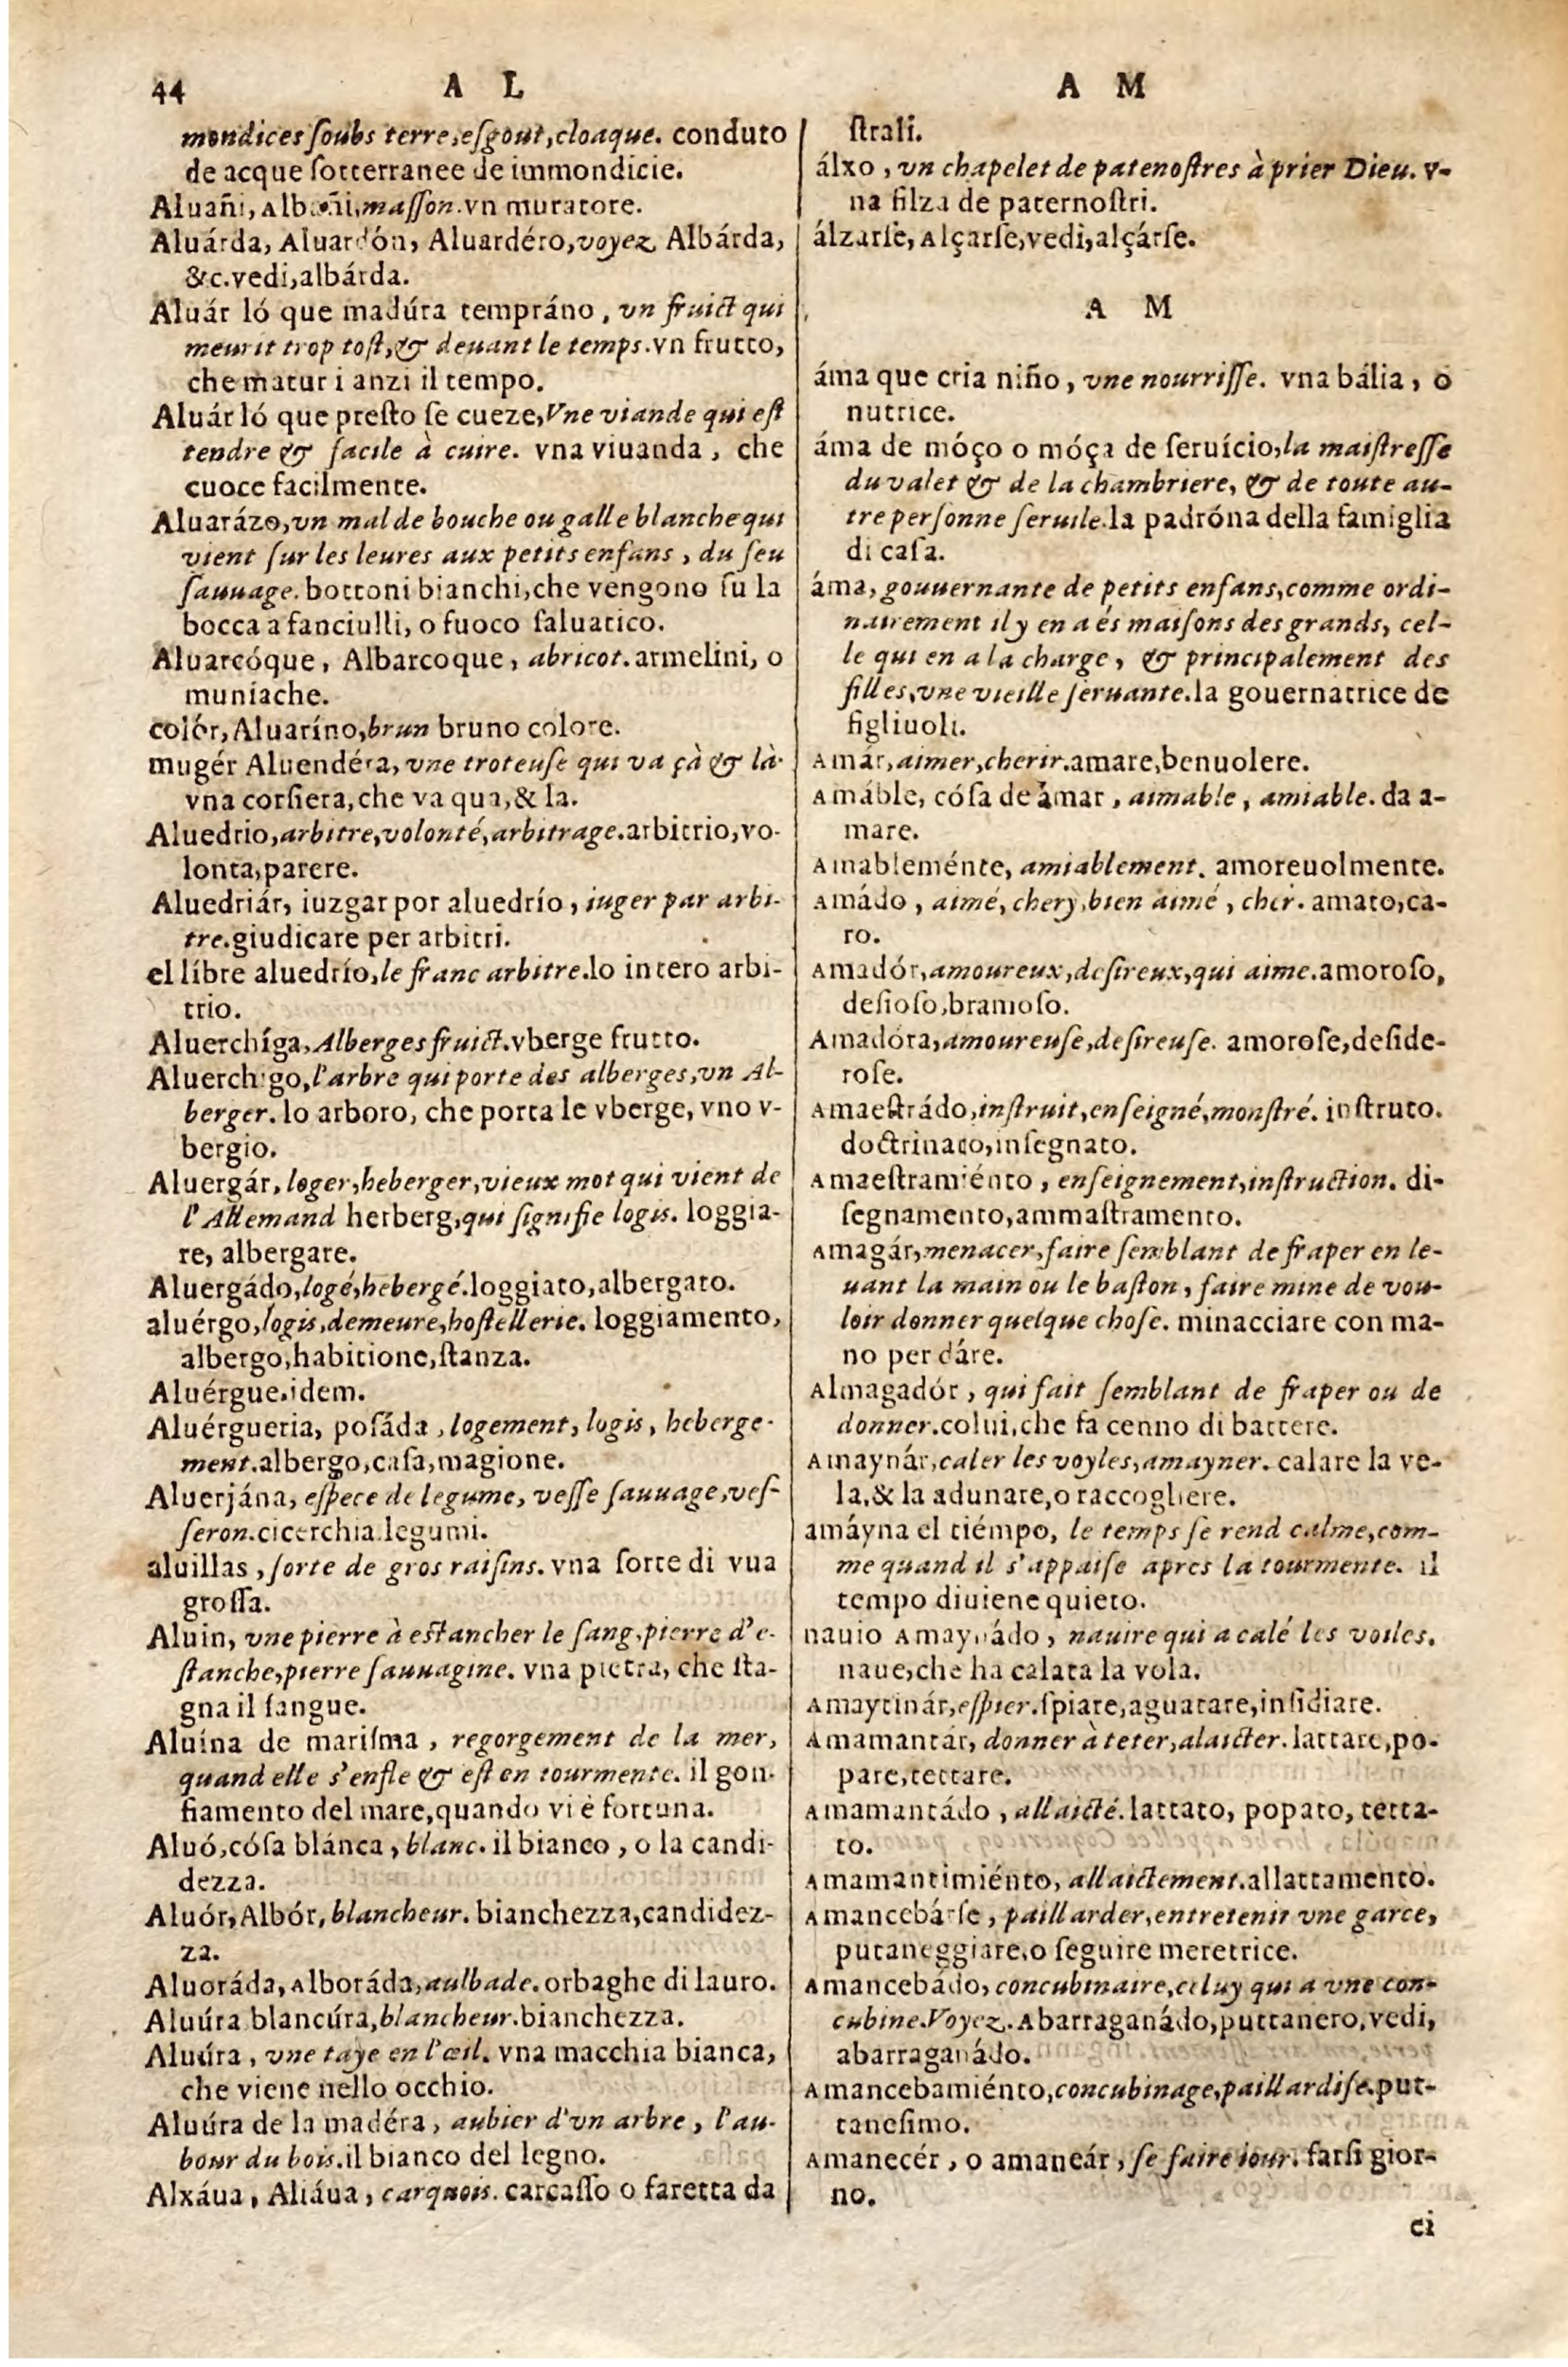 44 A L
mondices ſoubs terre, eſgout, cloaque. conduto
de acque ſotterranee de immondicie.
Aluañi, maſſon. vn muratore.
Aluárda, Aluardón, Aluardéro, voyez Albárda,
&c. vedi, albárda.
Aluár ló que madúra tempráno, vn fruict qui
meurit trop toſt, & deuant le temps. vn frutto,
che maturi anzi il tempo.
Aluár ló que preſto ſe cueze, Vne viande qui eſt
tendre & facile à cuire. vna viuanda, che
cuoce facilmente.
Aluarázo, vn mal de bouche ou galle blanche qui
vient ſur les leures aux petits enfans, du feu
ſauuage. bottoni bianchi, che vengono ſu la
bocca a fanciulli, o fuoco ſaluatico.
Aluarcóque, Albarcoque, abricot. armelini, o
muniache.
colór, Aluaríno, brun bruno colore.
mugér Aluendéra, vne troteuſe qui va çà & là.
vna corſiera, che va qua, & la.
Aluedrio, arbitre, volonté, arbitrage. arbitrio, vo-
lonta, parere.
Aluedriár, iuzgar por aluedrío, iuger par arbi-
tre. giudicare per arbitri.
el líbre aluedrío, le franc arbitre. lo intero arbi-
trio.
Aluerchíga, Alberges fruict. vberge frutto.
Aluerchigo, l'arbre qui porte des alberges, vn Al-
berger. lo arboro, che porta le vberge, vno v-
bergio.
Aluergár, loger, heberger, vieux mot qui vient de
l'Allemand herberg, qui ſignifie logis. loggia-
re, albergare.
Aluergádo, logé, hebergé. loggiato, albergato.
aluérgo, logis, demeure, hoſtellerie. loggiamento,
albergo, habitione, ſtanza.
Aluérgue. idem.
Aluérgueria, poſáda, logement, logis, heberge-
ment. albergo, caſa, magione.
Aluerjána, eſpece de legume, veſſe ſauuage, veſ-
ſeron. cicerchia legumi.
aluillas, ſorte de gros raiſins. vna ſorte di vua
groſſa.
Aluin, vne pierre à eſtancher le ſang, pierre d'e-
ſtanche, pierre ſauuagine. vna pietra, che ſta-
gna il ſangue.
Aluína de mariſma, regorgement de la mer,
quand elle s'enfle & eſt en tourmente. il gon-
fiamento del mare, quando vi è fortuna.
Aluó, cóſa blánca, blanc. il bianco, o la candi-
dezza.
Aluór, Albór, blancheur. bianchezza, candidez-
za.
Aluoráda, Alboráda, aulbade. orbaghe di lauro.
Aluúra blancúra, blancheur. bianchezza.
Aluúra, vne taye en l'œil. vna macchia bianca,
che viene nello occhio.
Aluúra de la madéra, aubier d'vn arbre, l'au-
bour du bois. il bianco del legno.
Alxáua, Aliáua, carquois. carcaſſo o faretta da
A M
ſtrali.
álxo, vn chapelet de patenoſtres à prier Dieu. v-
na filza de paternoſtri.
álzarſe, Alçarſe, vedi, alçárſe.
A M
áma que cria niño, vne nourriſſe. vna bália, o
nutrice.
áma de móço o móça de ſeruício, la maiſtreſſe
du valet & de la chambriere, & de toute au-
tre perſonne ſeruile. la padróna della famiglia
di caſa.
áma, gouuernante de petits enfans, comme ordi-
nairement il y en a és maiſons des grands, cel-
le qui en a la charge, & principalement des
filles, vne vieille ſeruante. la gouernatrice de
figliuoli.
Amár, aimer, cherir. amare, benuolere.
Amáble, cóſa de amar, aimable, amiable. da a-
mare.
Amableménte, amiablement. amoreuolmente.
Amádo, aimé, chery, bien aimé, cher. amato, ca-
ro.
Amadór, amoureux, deſireux, qui aime. amoroſo,
deſioſo, bramoſo.
Amadóra, amoureuſe, deſireuſe. amoroſe, deſide-
roſe.
Amaeſtrádo, inſtruit, enſeigné, monſtré. inſtruto.
doctrinato, inſegnato.
Amaeſtramiénto, enſeignement, inſtruction. di-
ſegnamento, ammaſtramento.
Amagár, menacer, faire ſemblant de fraper en le-
uant la main ou le baſton, faire mine de vou-
loir donner quelque choſe. minacciare con ma-
no per dáre.
Almagadór, qui fait ſemblant de fraper ou de
donner. colui, che fa cenno di battere.
Amaynár, caler les voyles, amayner. calare la ve-
la, & la adunare, o raccogliere.
amáyna el tiémpo, le temps ſe rend calme, com-
me quand il s'appaiſe apres la tourmente. il
tempo diuiene quieto.
nauio Amaynádo, nauire qui a calé les voiles.
naue, che ha calata la vola.
Amaytinár, eſpier. ſpiare, aguatare, inſidiare.
Amamantár, donner à teter, alaicter. lattare, po-
pare, tettare.
Amamantádo, allaicté. lattato, popato, tetta-
to.
Amamantimiénto, allaictement. allattamento.
Amancebárſe, paillarder, entretenir vne garce,
putaneggiare, o ſeguire meretrice.
Amancebádo, concubinaire, celuy qui a vne con-
cubine. Voyez. Abarraganádo, puttanero, vedi,
abarraganádo.
Amancebamiénto, concubinage, paillardiſe. put-
taneſimo.
Amanecér, o amaneár, ſe faire iour. farſi gior-
no.
ci